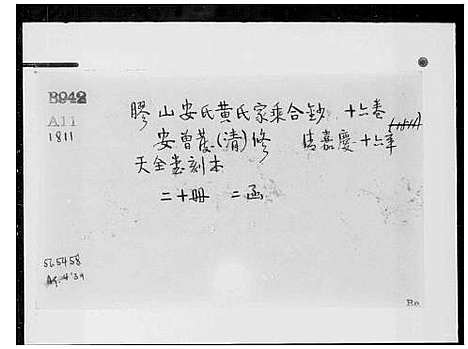 B942
A11
1811
膠山安氏黄氏家乘合鈔 十六卷
(1811)
安曾茂(清)修 清嘉慶十六年
天全堂刻本
二十冊 二函
565458